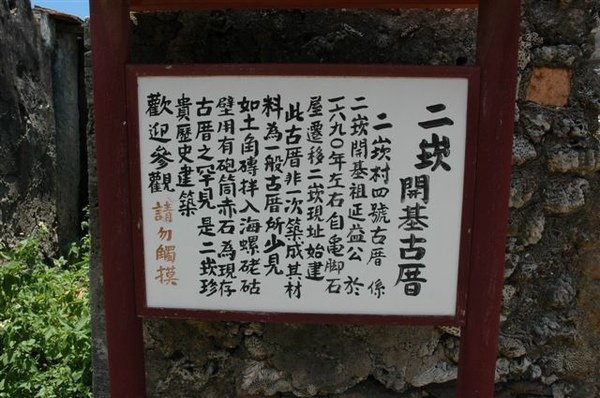 二崁開基古厝
二崁村四號古厝係
二崁開基祖延益公於
一六九〇年左右自龜腳石
屋遷移二崁現址始建
此古厝非一次築成其材
料為一般古厝所少見
如土角磚拌入海螺硓𥑮
壁用有砲筒赤石為現存
古厝之罕見是二崁珍
貴歷史建築
歡迎參觀請勿觸摸